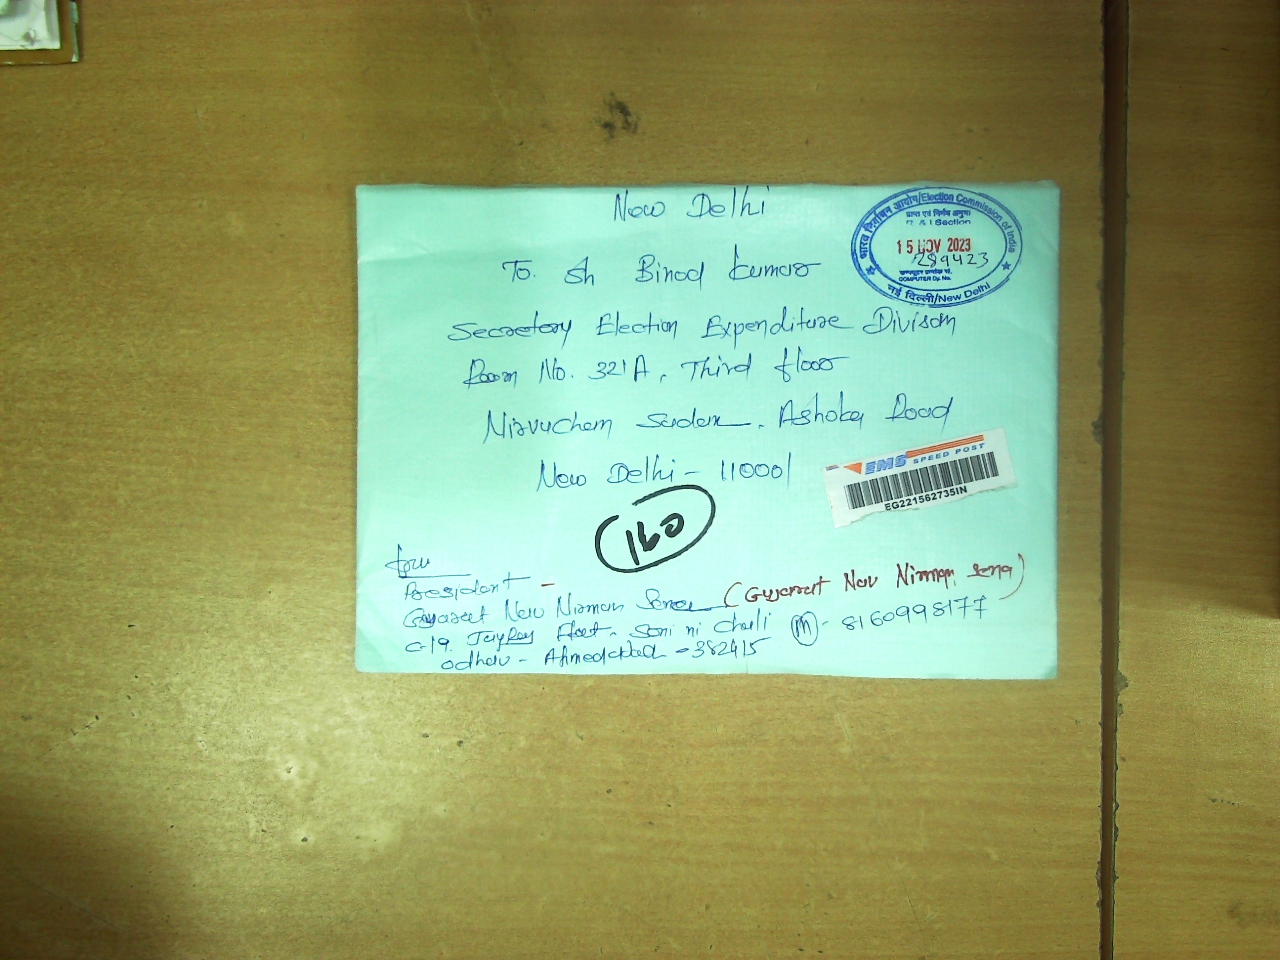 New Delhi
भारत निर्वाचन आयोग/Election Commission of India
प्राप्त एवं निर्गम अनुभाग
R & I Section
15 NOV 2023
289423
COMPUTER Dy. No.
नई दिल्ली/New Delhi
To. Sh Binod Kumar
Secretary Election Expenditure Divison
Room No. 321A, Third floor
Nirvachan Sadan, Ashoka Road
New Delhi - 110001
EMS SPEED POST
EG221562735IN
160
from
President -
Gujarat Nav Nirman Sena (Gujarat Nav Nirman Sena)
C-19. Jaydeep Flat. Soni ni Chali (M) - 8160998177
Odhav - Ahmedabad - 382415